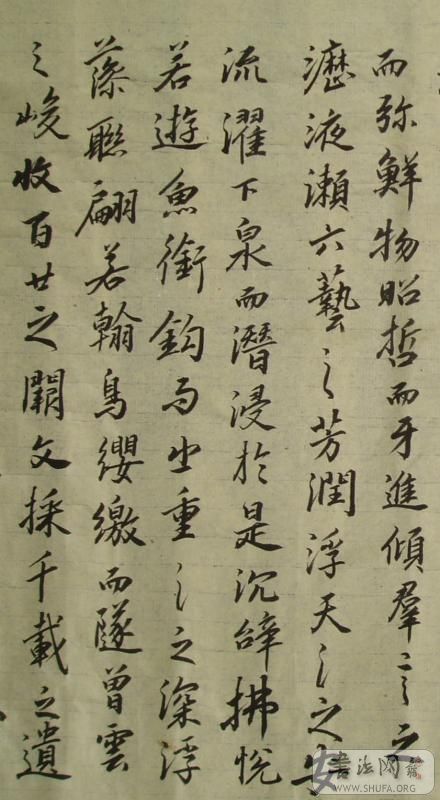 而弥鮮物昭晢而牙進傾羣言之
瀝液瀬六藝之芳潤浮天淵之安
流濯下泉而潛浸於是沉辭拂悅
若遊魚銜鈎而出重淵之深浮
藻聯翩若翰鳥纓繳而隧曾雲
之峻收百世之闕文採千載之遺
书法网
WWW.SHUFA.ORG